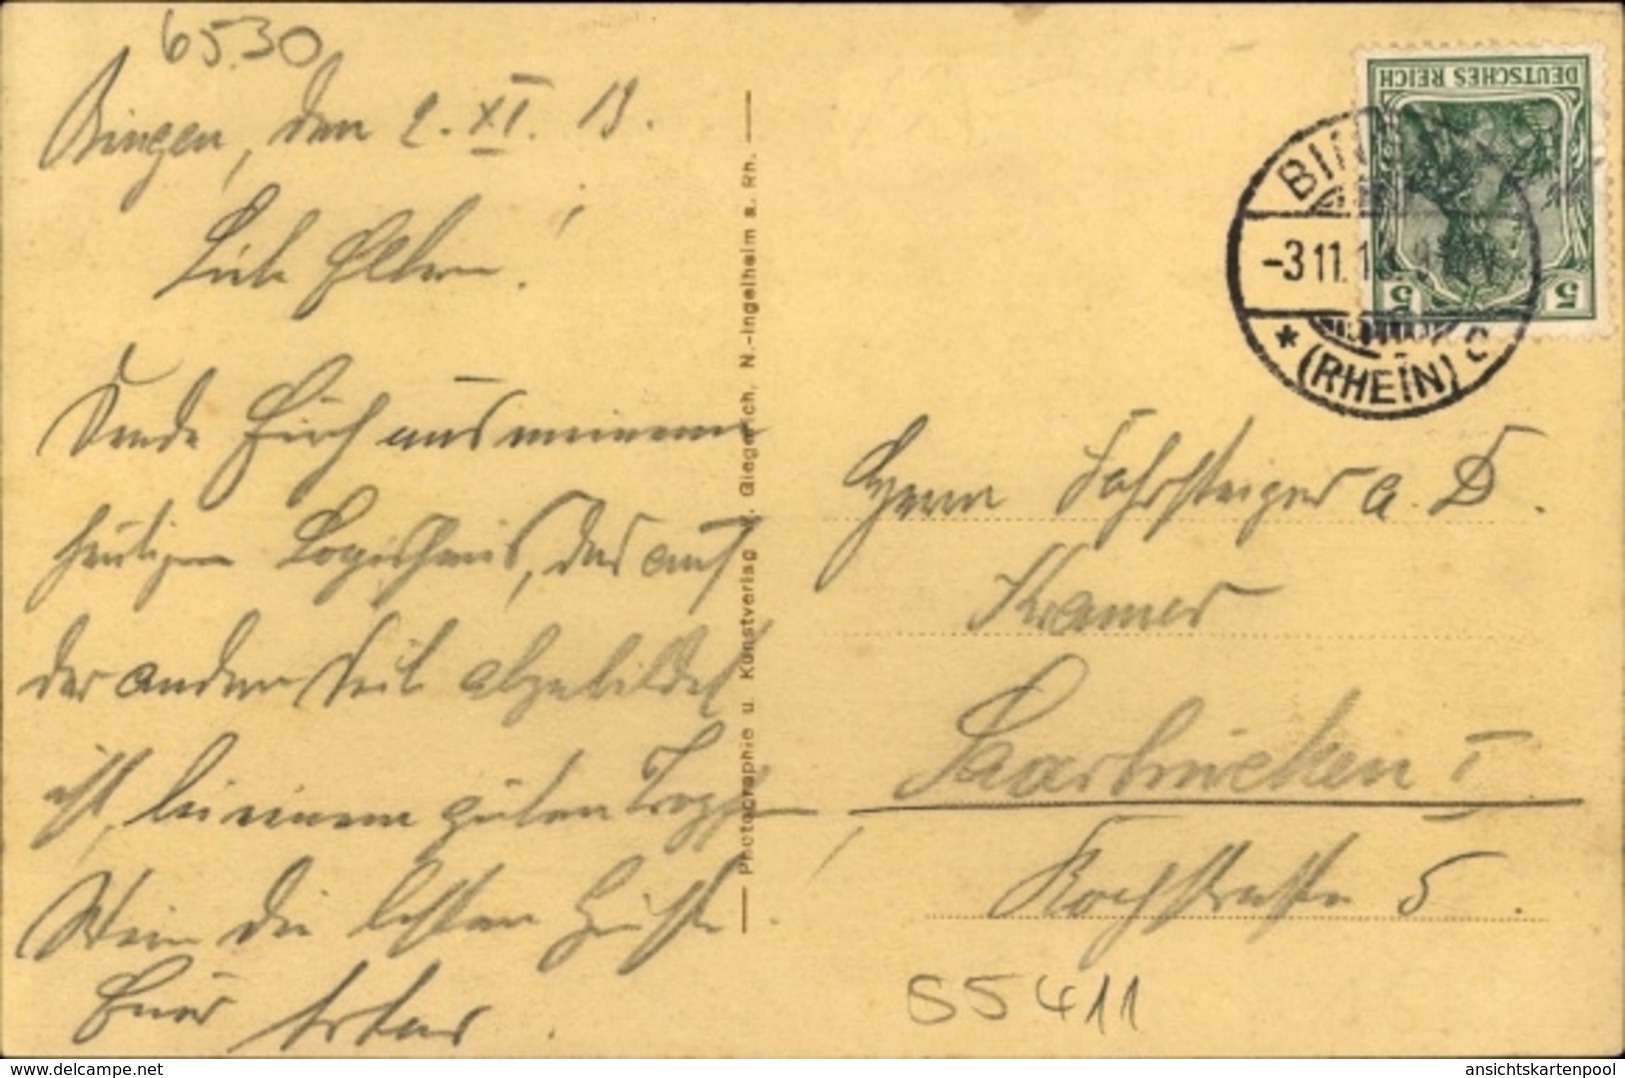 6530
Bingen, den 2. XI. 13.
Liebe Eltern!
Sende Euch aus meinem
heutigen Logishaus, das auf
der andern Seite abgebildet
ist, bei einem guten Tropfen
Wein die besten Grüße.
Euer Artur.
Photographie u. Kunstverlag Giegerich, N.-Ingelheim a. Rh.
DEUTSCHES REICH
5 5
BINGEN
-3.11.1
* (RHEIN) c
Herrn Fahrsteiger a. D.
Kramer
Saarbrücken I
Kochstraße 5.
S5411
delcampe.net
ansichtskartenpool